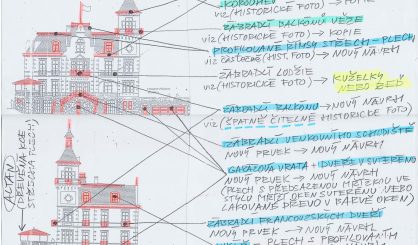 KOROUHEV
VIZ (HISTORICKÉ FOTO) → KOPIE
ZÁBRADLÍ BALKÓNU VĚŽE
VIZ (HISTORICKÉ FOTO) → KOPIE
PROFILOVANÉ ŘÍMSY STŘECH - PLECH
VIZ ČÁSTEČNĚ (HIST. FOTO) → NOVÝ NÁVRH
ZÁBRADLÍ LODŽIE → KUŽELKY
VIZ (HISTORICKÉ FOTO) NEBO ZEĎ
ZÁBRADLÍ BALKÓNU → NOVÝ NÁVRH
VIZ (ŠPATNĚ ČITELNÉ HISTORICKÉ FOTO)
ZÁBRADLÍ VENKOVNÍHO SCHODIŠTĚ
NOVÝ PRVEK → NOVÝ NÁVRH
GARÁŽOVÁ VRATA + DVEŘE V SUTERÉNU
NOVÝ PRVEK → NOVÝ NÁVRH
(PLECH S PŘEDSAZENOU MŘÍŽKOU VE
STYLU MŘÍŽÍ OKEN SUTERÉNU NEBO
LAKOVANÉ DŘEVO V BARVĚ OKEN)
ZÁBRADLÍ FRANCOUZSKÝCH DVEŘÍ
NOVÝ PRVEK → NOVÝ NÁVRH
PLECH S PROFILOVANÝM
ALTÁN
(DŘEVĚNÁ KCE
STŘECHA PLECH)